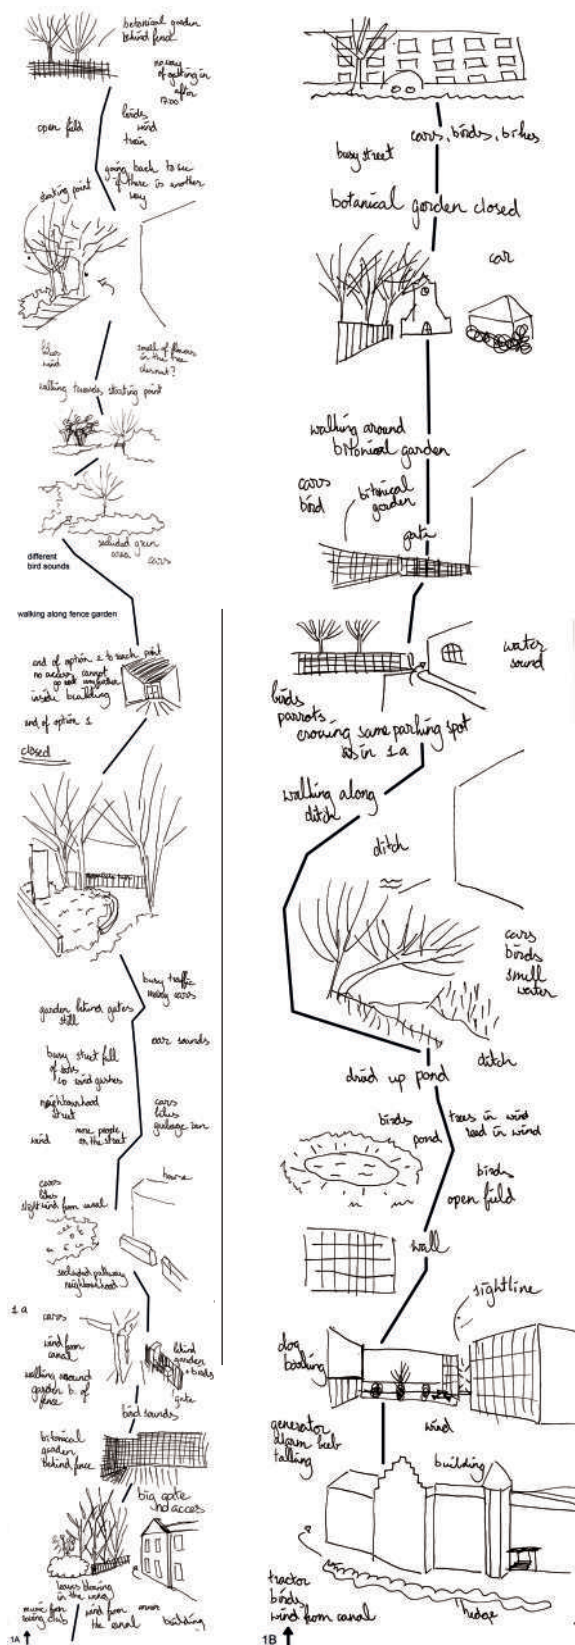 botanical garden
behind fence
no way
of getting in
after
17.00
open field
birds
wind
train
going back to see
if there is another
way
starting point
bikes
wind
smell of flowers
in the tree
chesnut?
walking towards starting point
secluded green
area
cars
different
bird sounds
walking along fence garden
end of option 2 to reach point
no access cannot
go any further
inside building
end of option 1
closed
busy traffic
many cars
garden behind gates
still
car sounds
busy street full
of
wind gushes
neighbourhood
street
cars
bikes
garbage van
more people
on the street
wind
cars
bikes
slight wind from canal
house
secluded pathway
neighbourhood
1 a
cars
wind from
canal
walking around
garden b. of
fence
behind
garden
+ birds
gate
bird sounds
bitonical
garden
behind fence
big gate
no acces
leaves blowing
in the wind
music from
rowing club
wind from over
the canal
building
1A
cars, birds, bikes
busy street
botanical garden closed
car
walking around
bitonical garden
cars
bird
bitonical
garden
gate
water
sound
birds
parrots
crossing same parking spot
as in 1a
walking along
ditch
ditch
cars
birds
smell
water
ditch
dried up pond
birds
pond
trees in wind
reed in wind
birds
open field
wall
sightline
dog
barking
wind
generator
alarm beeb
talking
building
tractor
birds
wind from canal
hedge
1B